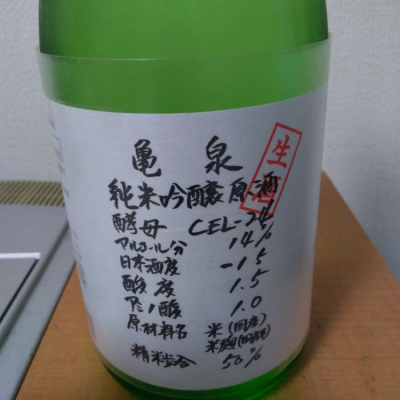 亀泉
純米吟醸原酒
生酒
酵母 CEL-24
アルコール分 14%
日本酒度 -15
酸度 1.5
アミノ酸 1.0
原材料名 米(国産)
米麹(国産米)
精米歩合 50%